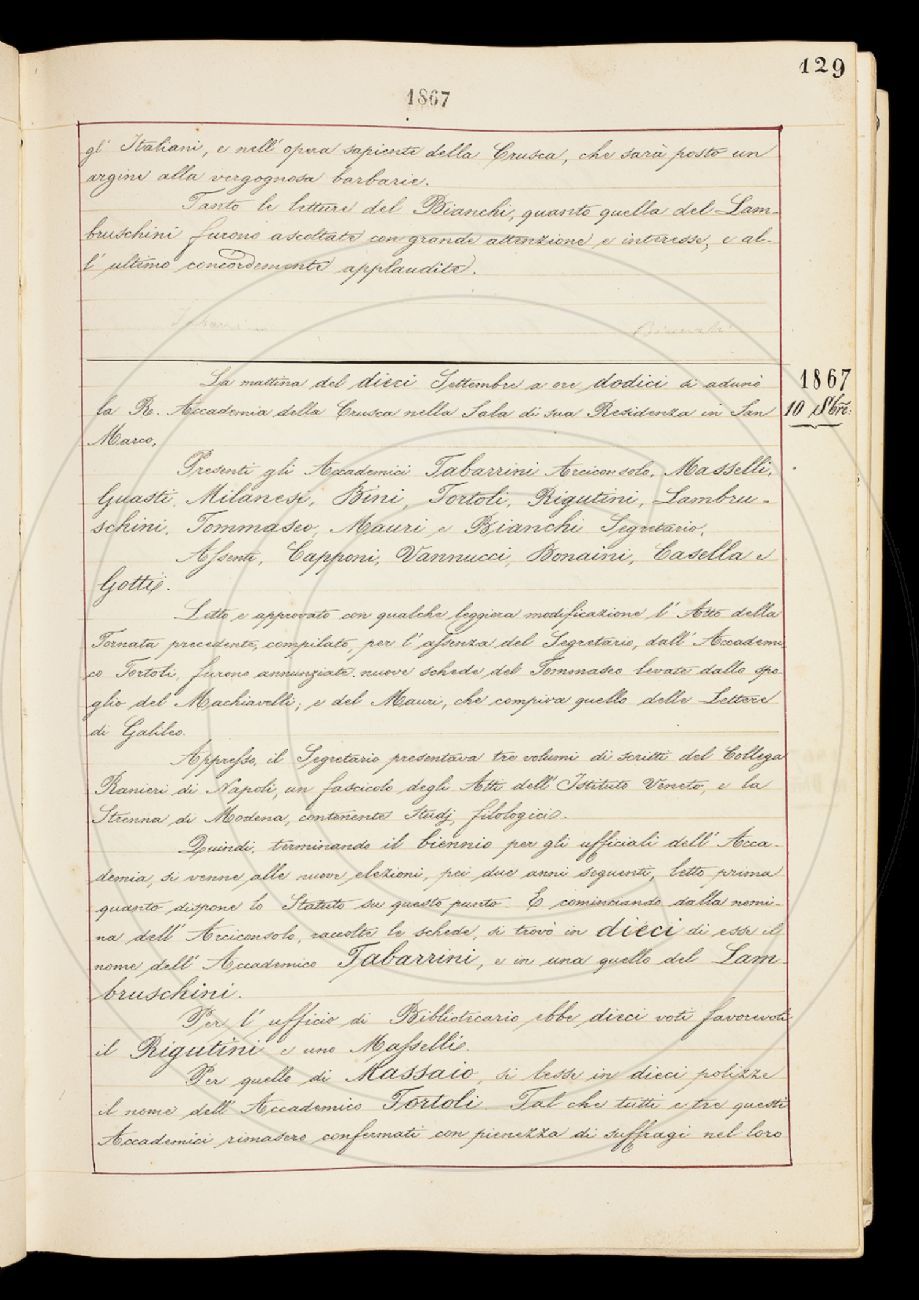 129
1867
gl' Italiani, e nell' opera sapiente della Crusca, che sarà posto un
argine alla vergognosa barbarie.
Tanto le letture del Bianchi, quanto quella del Lam-
bruschini furono ascoltate con grande attenzione e interesse, e al-
l' ultimo concordemente applaudite.
1867
10 Sbre.
La mattina del dieci Settembre a ore dodici si adunò
la R. Accademia della Crusca nella Sala di sua Residenza in San
Marco.
Presenti gli Accademici Tabarrini Arciconsolo, Masselli,
Guasti, Milanesi, Bini, Tortoli, Rigutini, Lambru-
schini, Tommaseo, Mauri e Bianchi Segretario.
Assenti, Capponi, Vannucci, Bonaini, Casella e
Gotti.
Letto e approvato con qualche leggiera modificazione l' Atto della
Tornata precedente, compilato, per l' assenza del Segretario, dall' Accademi
co Tortoli, furono annunziate nuove schede del Tommaseo levate dallo spo
glio del Machiavelli; e del Mauri, che compiva quello delle Lettere
di Galileo.
Appresso, il Segretario presentava tre volumi di scritti del Collega
Ranieri di Napoli, un fascicolo degli Atti dell' Istituto Veneto, e la
Strenna di Modena, contenente Studj filologici.
Quindi, terminando il biennio per gli ufficiali dell' Acca-
demia, si venne alle nuove elezioni, pei due anni seguenti, letto prima
quanto dispone lo Statuto su questo punto. E cominciando dalla nomi-
na dell' Arciconsolo, raccolte le schede, si trovò in dieci di esse il
nome dell' Accademico Tabarrini, e in una quello del Lam-
bruschini.
Per l' ufficio di Bibliotecario ebbe dieci voti favorevoli
il Rigutini e uno Masselli.
Per quello di Massaio, si lesse in dieci polizze
il nome dell' Accademico Tortoli. Tal che tutti e tre questi
Accademici rimasero confermati con pienezza di suffragi nel loro